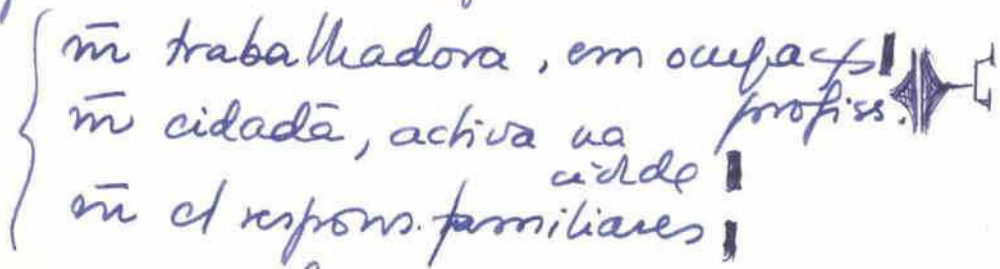 m̄ trabalhadora, em ocupaçs
profiss.
m̄ cidadã, activa na
cidde
m̄ c/ respons. familiares